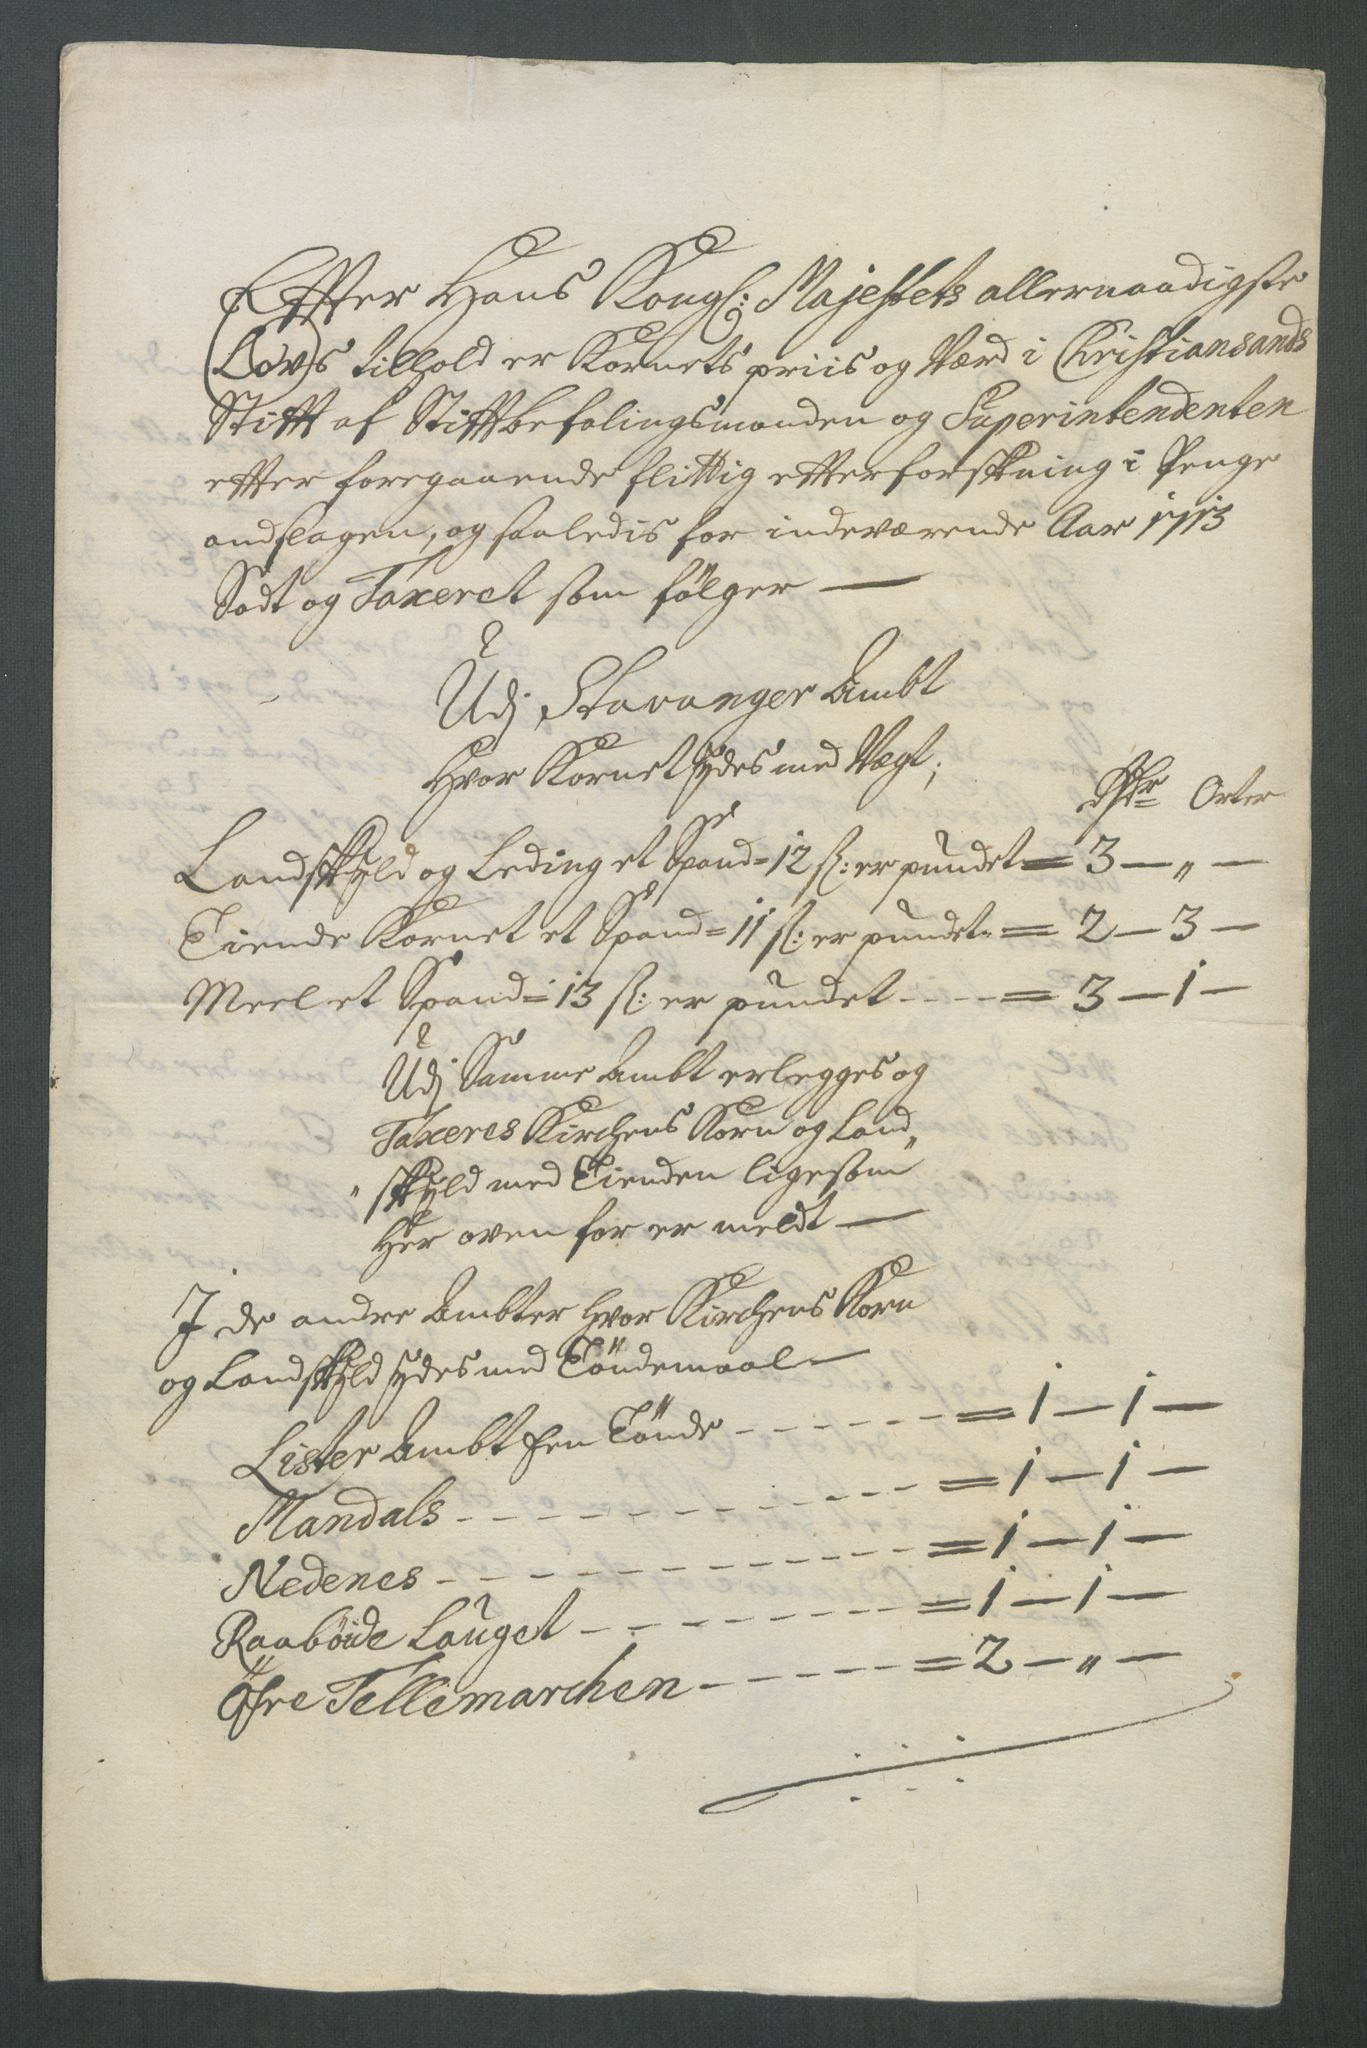 Effter Hans Kongl: Majestets allernaadigste
Lovs tilhold er Kornets priis og Værd i Christiansands
Stifft af Stifftbefalingsmanden og Superintendenten
effter foregaaende flittig effterforskning i Penge
andslagen, og saaledis for indeværende Aar 1713
Sadt og Taxeret som fölger —
Udj Stavanger Ambt
Hvor Kornet ydes med Vægt;
Orter
Landskyld og Leding et Spand = 12 s: er pundet = 3 — „ —
Tiende Kornet et Spand = 11 s: er pundet = 2 — 3 —
Meel et Spand = 13 s: er pundet - - - - = 3 — 1 —
Udj Samme Ambt erlegges og
Taxeres Kirchens Korn og Land„
„skyld med Tienden ligesom
Her oven for er meldt —
I de andre Ambter hvor Kirchens Korn
og Landskyld ydes med Töndemaal —
Lister Ambt hen Tönde - - - - - - = 1 — 1 —
Mandals - - - - - - - - - = 1 — 1 —
Nedenes - - - - - - - - - = 1 — 1 —
Raaböide Lauget - - - - - - - = 1 — 1 —
Öfre Tellemarchen - - - - - - = 2 — „ —